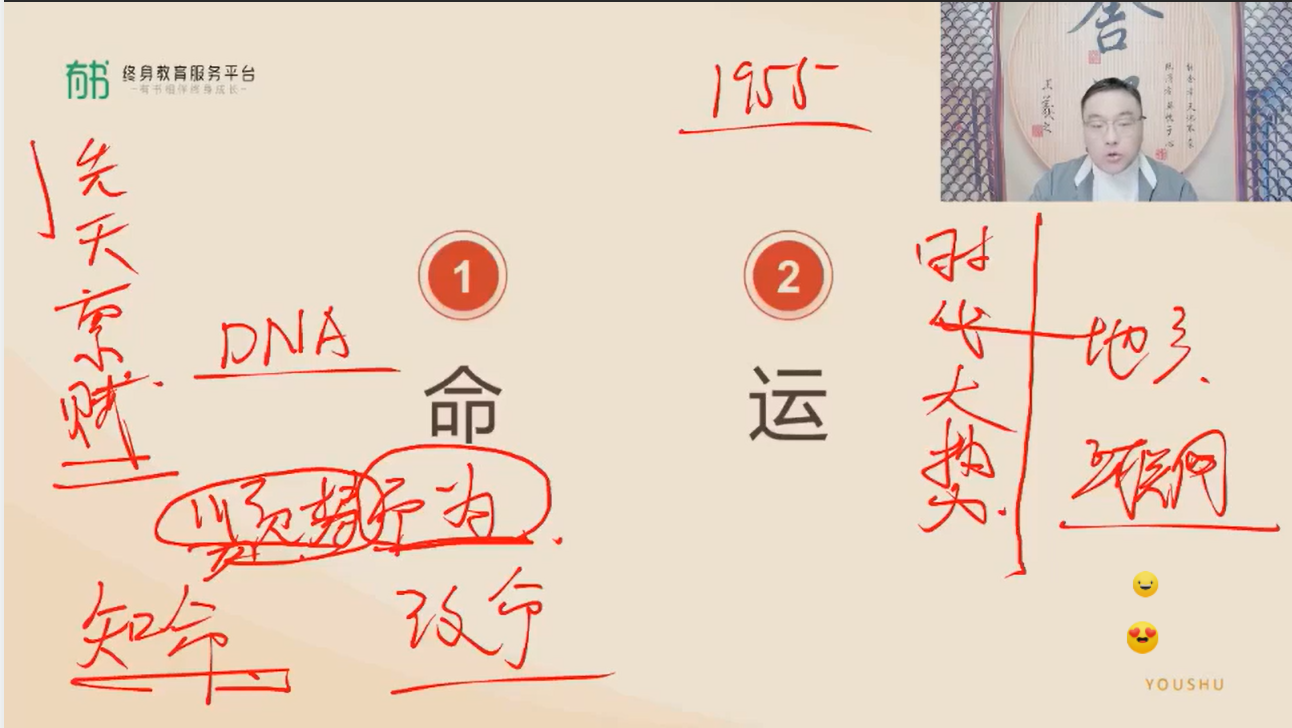 有书 终身教育服务平台
-有书相伴终身成长-
1955
先天禀赋
DNA
1
命
2
运
时代大势
地产
互联网
顺势行为
知命
改命
舍
王羲之
YOUSHU